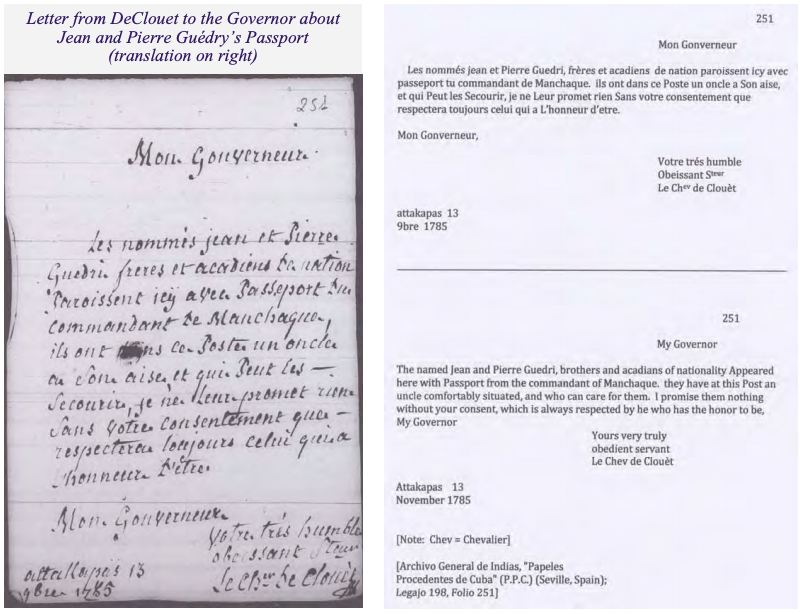 Letter from DeClouet to the Governor about
Jean and Pierre Guédry's Passport
(translation on right)
251
Mon Gouverneur
Les nommés jean et Pierre
Guedri freres et acadiens de nation
Paroissent icÿ avec Passeport du
commandant de Manchaque,
ils ont ce Poste un oncle
a Son aise, et qui Peut les —
Secourir, je ne Leur promet rien
Sans votre consentement que —
respectera toujours celui qui a
L'honneur d'etre
Mon Gouverneur
Votre trés humble
obeissant Steur
Le Cher de Clouèt
attakapas 13
9bre 1785
251
Mon Gonverneur
Les nommés jean et Pierre Guedri, frères et acadiens de nation paroissent icy avec
passeport tu commandant de Manchaque. ils ont dans ce Poste un oncle a Son aise,
et qui Peut les Secourir, je ne Leur promet rien Sans votre consentement que
respectera toujours celui qui a L'honneur d'etre.
Mon Gonverneur,
Votre trés humble
Obeissant Steur
Le Chev de Clouèt
attakapas 13
9bre 1785
251
My Governor
The named Jean and Pierre Guedri, brothers and acadians of nationality Appeared
here with Passport from the commandant of Manchaque. they have at this Post an
uncle comfortably situated, and who can care for them. I promise them nothing
without your consent, which is always respected by he who has the honor to be,
My Governor
Yours very truly
obedient servant
Le Chev de Clouèt
Attakapas 13
November 1785
[Note: Chev = Chevalier]
[Archivo General de Indias, "Papeles
Procedentes de Cuba" (P.P.C.) (Seville, Spain);
Legajo 198, Folio 251]